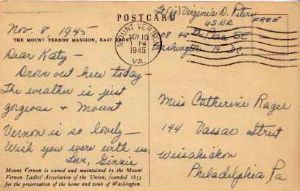 POSTCARD
Nov. 8, 1945
THE MOUNT VERNON MANSION, EAST
Dear Katy -
Drove out here today
The weather is just
gorgeous & Mount
Vernon is so lovely -
Wish you were with us.
Luv, Ginnie
Mount Vernon is owned and maintained by the Mount
Vernon Ladies' Association of the Union, founded 1853
for the preservation of the home and tomb of Washington.
MOUNT VERNON
NOV 10
PM
1945
VA.
Virginia D.
FREE
Washington
Miss Catherine Rager
144 Vassar Street
Wissahickon
Philadelphia Pa